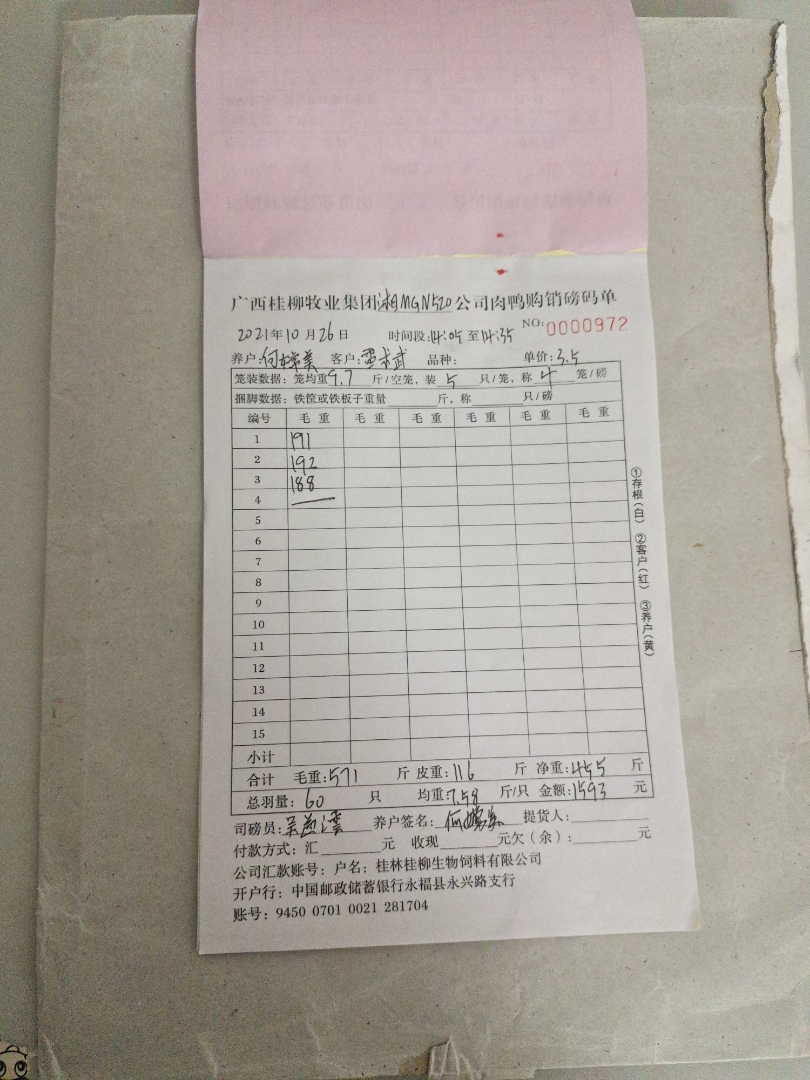 广西桂柳牧业集团湘MGN520公司肉鸭购销磅码单
NO: 0000972
2021年10月26日 时间段:14:05至14:35
养户:何 美 客户: 武 品种: 单价:3.5
笼装数据: 笼均重9.7斤/空笼, 装5只/笼, 称4笼/磅
捆脚数据: 铁筐或铁板子重量 斤, 称 只/磅
编号 毛重 毛重 毛重 毛重 毛重 毛重
1 191
2 192
3 188
4
5
6
7
8
9
10
11
12
13
14
15
小计
合计 毛重:571斤 皮重:116斤 净重:455斤
总羽量:60只 均重:7.58斤/只 金额:1593元
司磅员: 养户签名:何 提货人:
付款方式: 汇 元 收现 元欠(余): 元
公司汇款账号: 户名: 桂林桂柳生物饲料有限公司
开户行: 中国邮政储蓄银行永福县永兴路支行
账号: 9450 0701 0021 281704
①存根(白) ②客户(红) ③养户(黄)